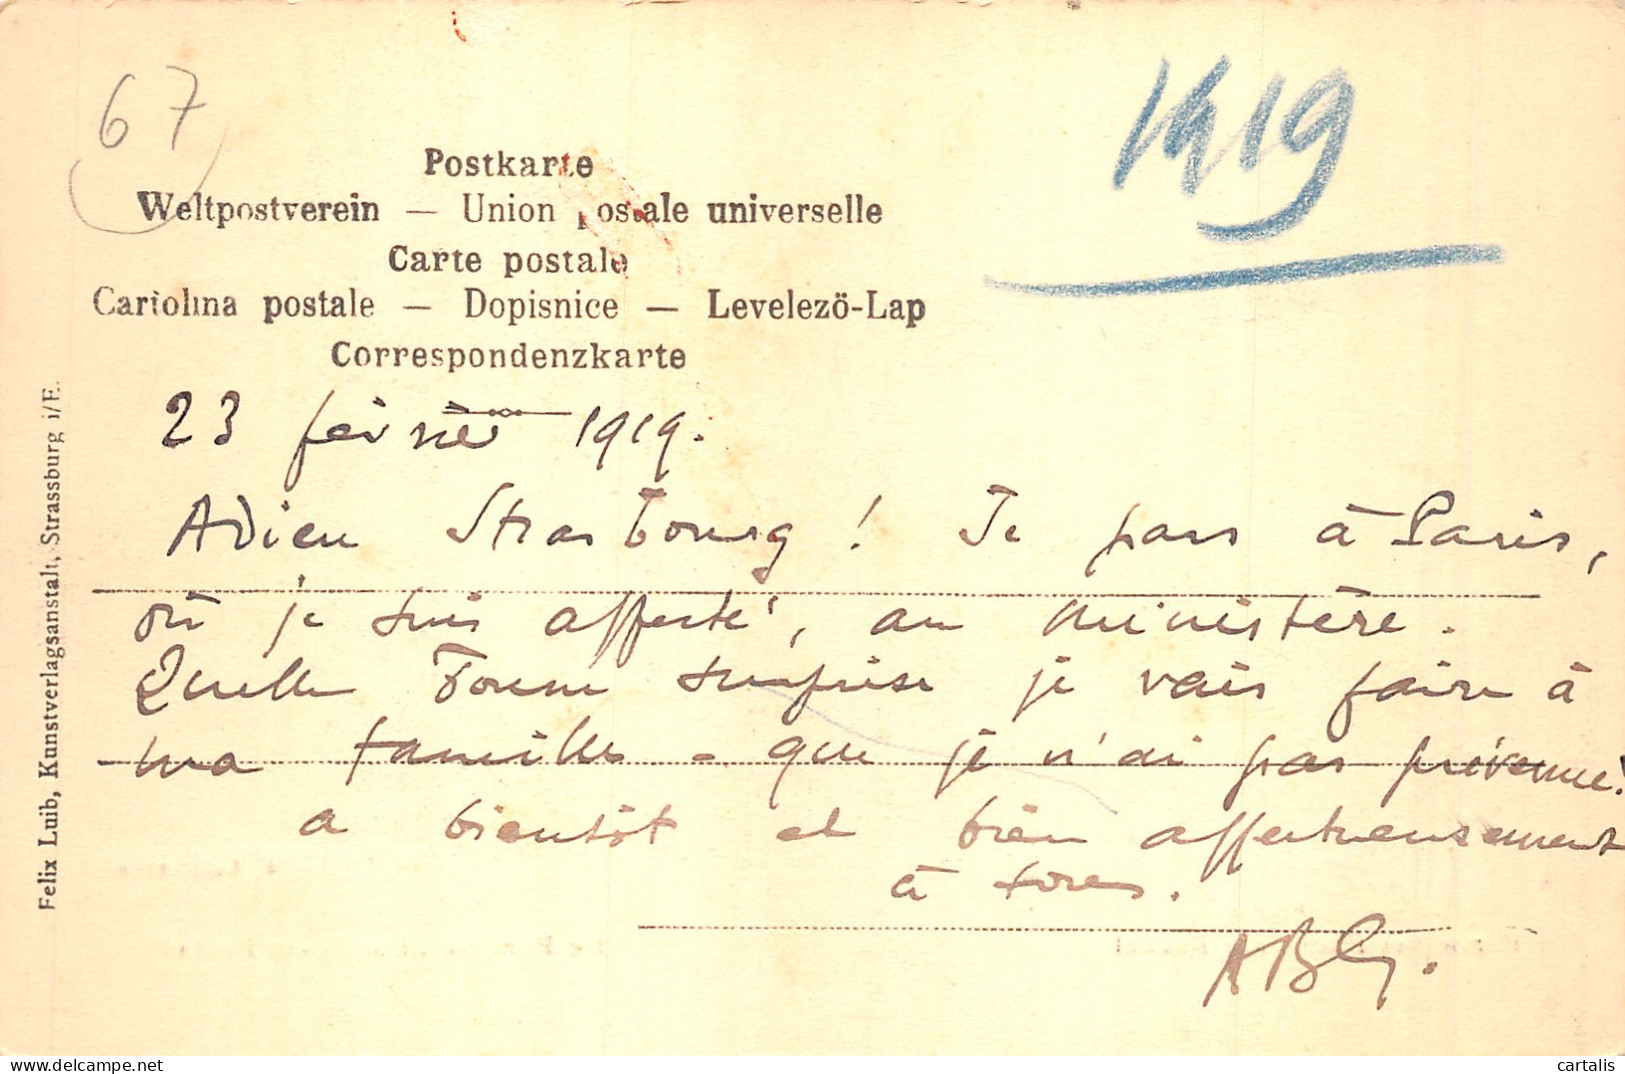 67
1919
Postkarte
Weltpostverein — Union postale universelle
Carte postale
Cartolina postale — Dopisnice — Levelezö-Lap
Correspondenzkarte
Felix Luib, Kunstverlagsanstalt, Strassburg i/E.
23 février 1919.
Adieu Strasbourg ! Je pars à Paris,
où je suis affecté, au Ministère.
Quelle bonne surprise je vais faire à
ma famille - que je n'ai pas prévenue!
a bientôt et bien affectueusement
à tous.
ABG.
cartalis